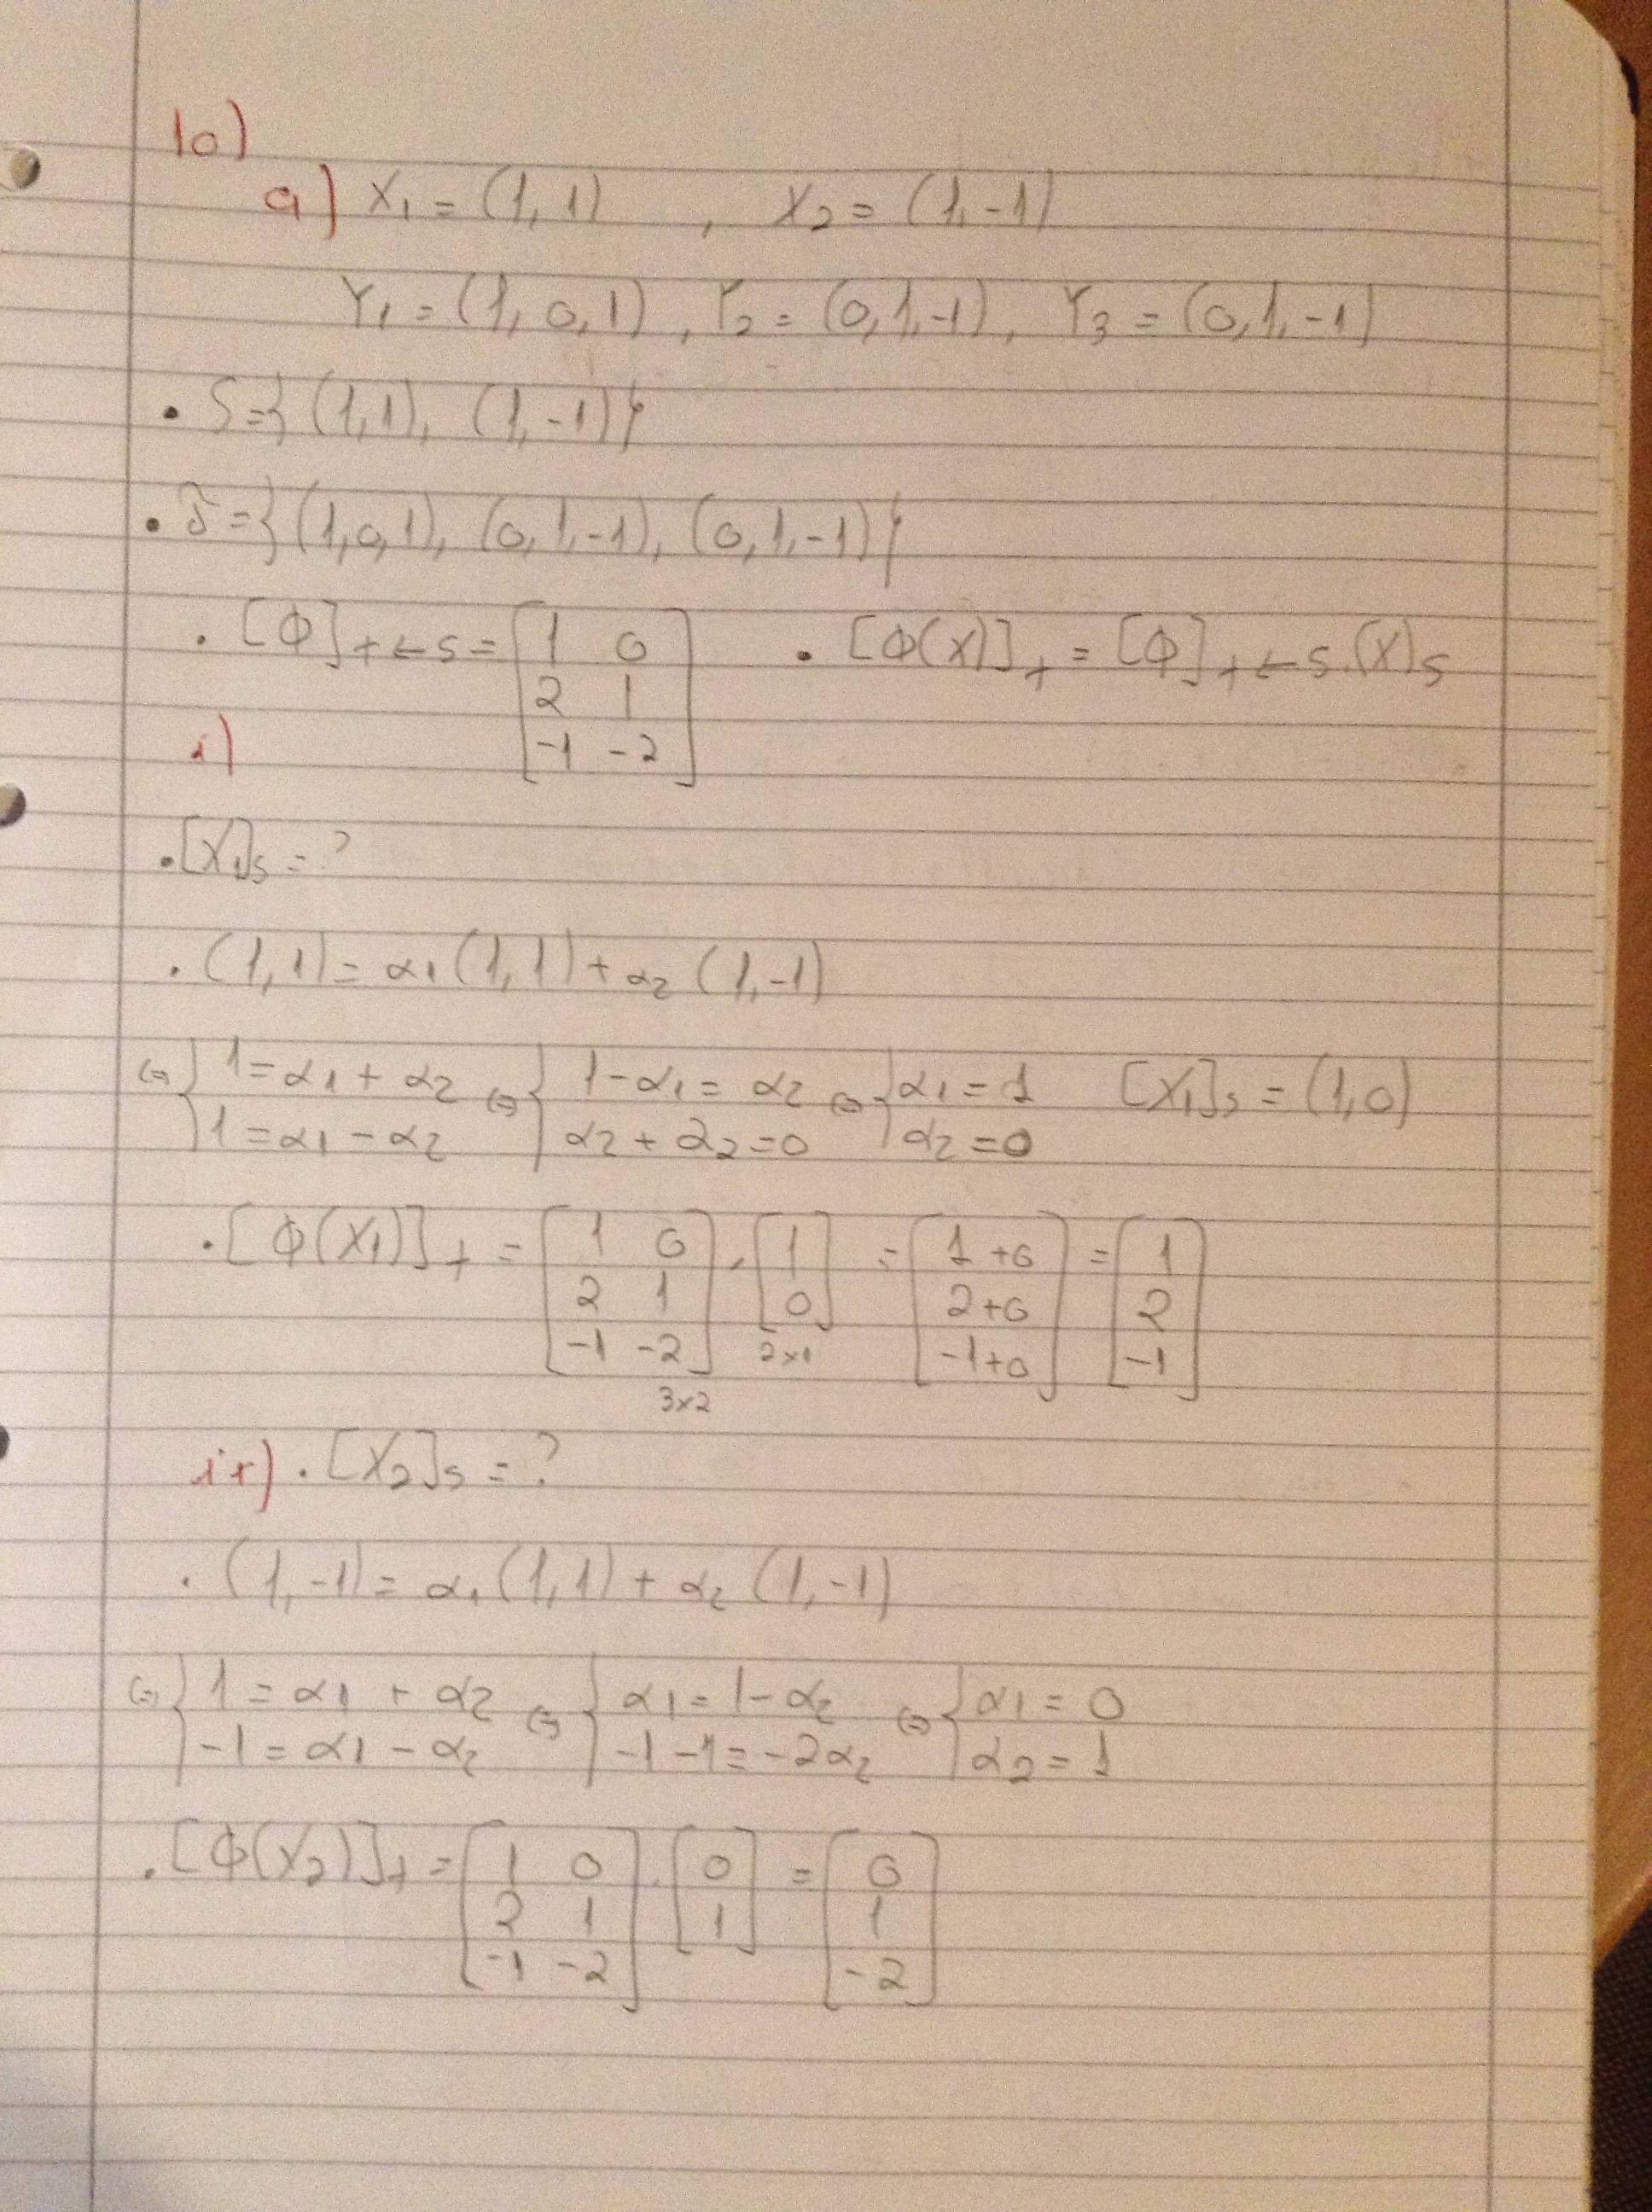 10)
a) X₁ = (1, 1) , X₂ = (1, -1)
Y₁ = (1, 0, 1) , Y₂ = (0, 1, -1) , Y₃ = (0, 1, -1)
• S = {(1,1), (1,-1)}
• T = {(1,0,1), (0,1,-1), (0,1,-1)}
• [Φ]T←S = [1 0; 2 1; -1 -2] • [Φ(X)]T = [Φ]T←S . (X)S
i)
• [X₁]S = ?
• (1,1) = α₁ (1,1) + α₂ (1,-1)
⇔ { 1 = α₁ + α₂; 1 = α₁ - α₂ ⇔ { 1 - α₁ = α₂; α₂ + α₂ = 0 ⇔ { α₁ = 1; α₂ = 0 [X₁]S = (1,0)
• [Φ(X₁)]T = [1 0; 2 1; -1 -2] 3x2 . [1; 0] 2x1 = [1+0; 2+0; -1+0] = [1; 2; -1]
ii) • [X₂]S = ?
• (1,-1) = α₁ (1,1) + α₂ (1,-1)
⇔ { 1 = α₁ + α₂; -1 = α₁ - α₂ ⇔ { α₁ = 1 - α₂; -1 -1 = -2α₂ ⇔ { α₁ = 0; α₂ = 1
• [Φ(X₂)]T = [1 0; 2 1; -1 -2] . [0; 1] = [0; 1; -2]